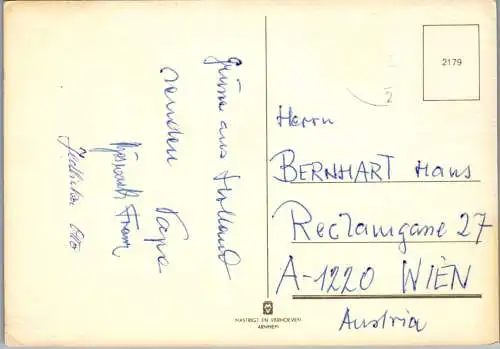 Grüsse aus Holland
senden Papa
Franz
Otto
2179
Herrn
BERNHART Hans
Reclamgasse 27
A-1220 WIEN
Austria
MASTRIGT EN VERHOEVEN
ARNHEM